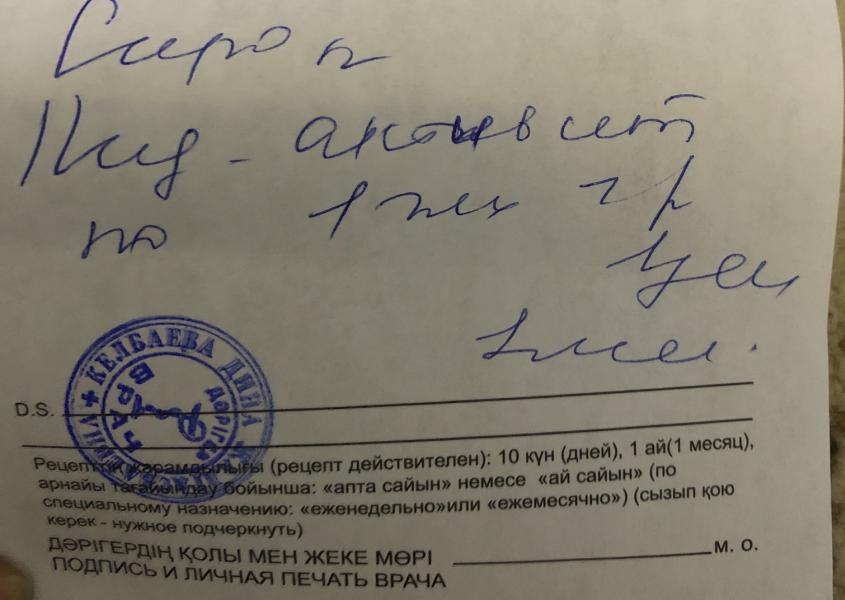 Сироп
Кид - активит
по 1 ч.л.
D.S.
КЕЛБАЕВА ДИНА
ВРАЧ
ДӘРІГЕР
Рецепттің жарамдылығы (рецепт действителен): 10 күн (дней), 1 ай(1 месяц),
арнайы тағайындау бойынша: «апта сайын» немесе «ай сайын» (по
специальному назначению: «еженедельно»или «ежемесячно») (сызып қою
керек - нужное подчеркнуть)
ДӘРІГЕРДІҢ ҚОЛЫ МЕН ЖЕКЕ МӨРІ м. о.
ПОДПИСЬ И ЛИЧНАЯ ПЕЧАТЬ ВРАЧА